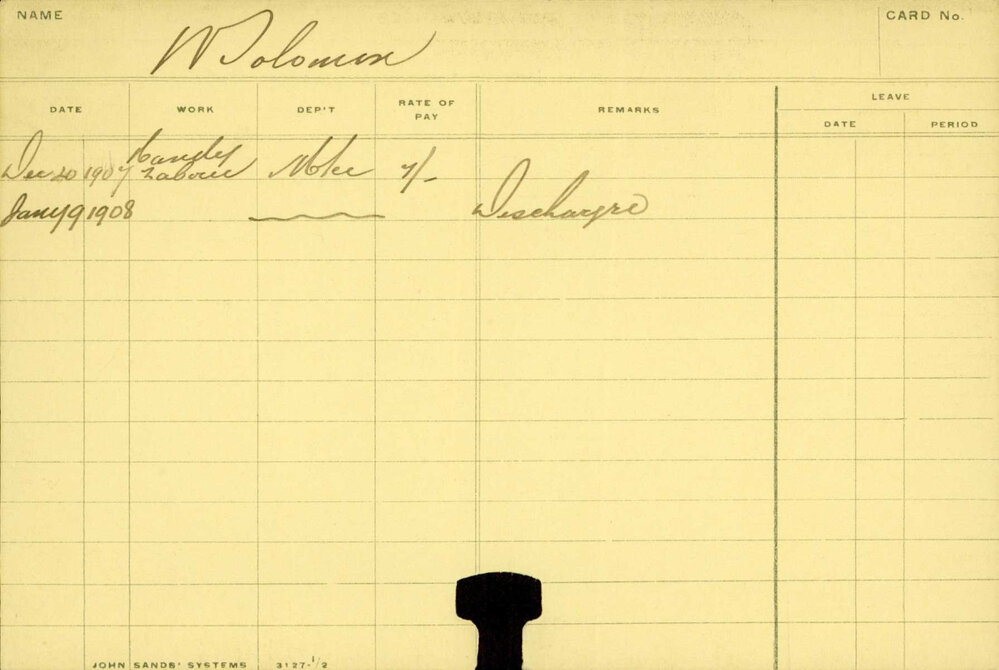 NAME
CARD No.
W Solomon
DATE WORK DEP'T RATE OF PAY REMARKS LEAVE
DATE PERIOD
Dec 20 1907 Handy Labour 7/-
Jany 9 1908 Discharge
JOHN SANDS' SYSTEMS 3127-1/2